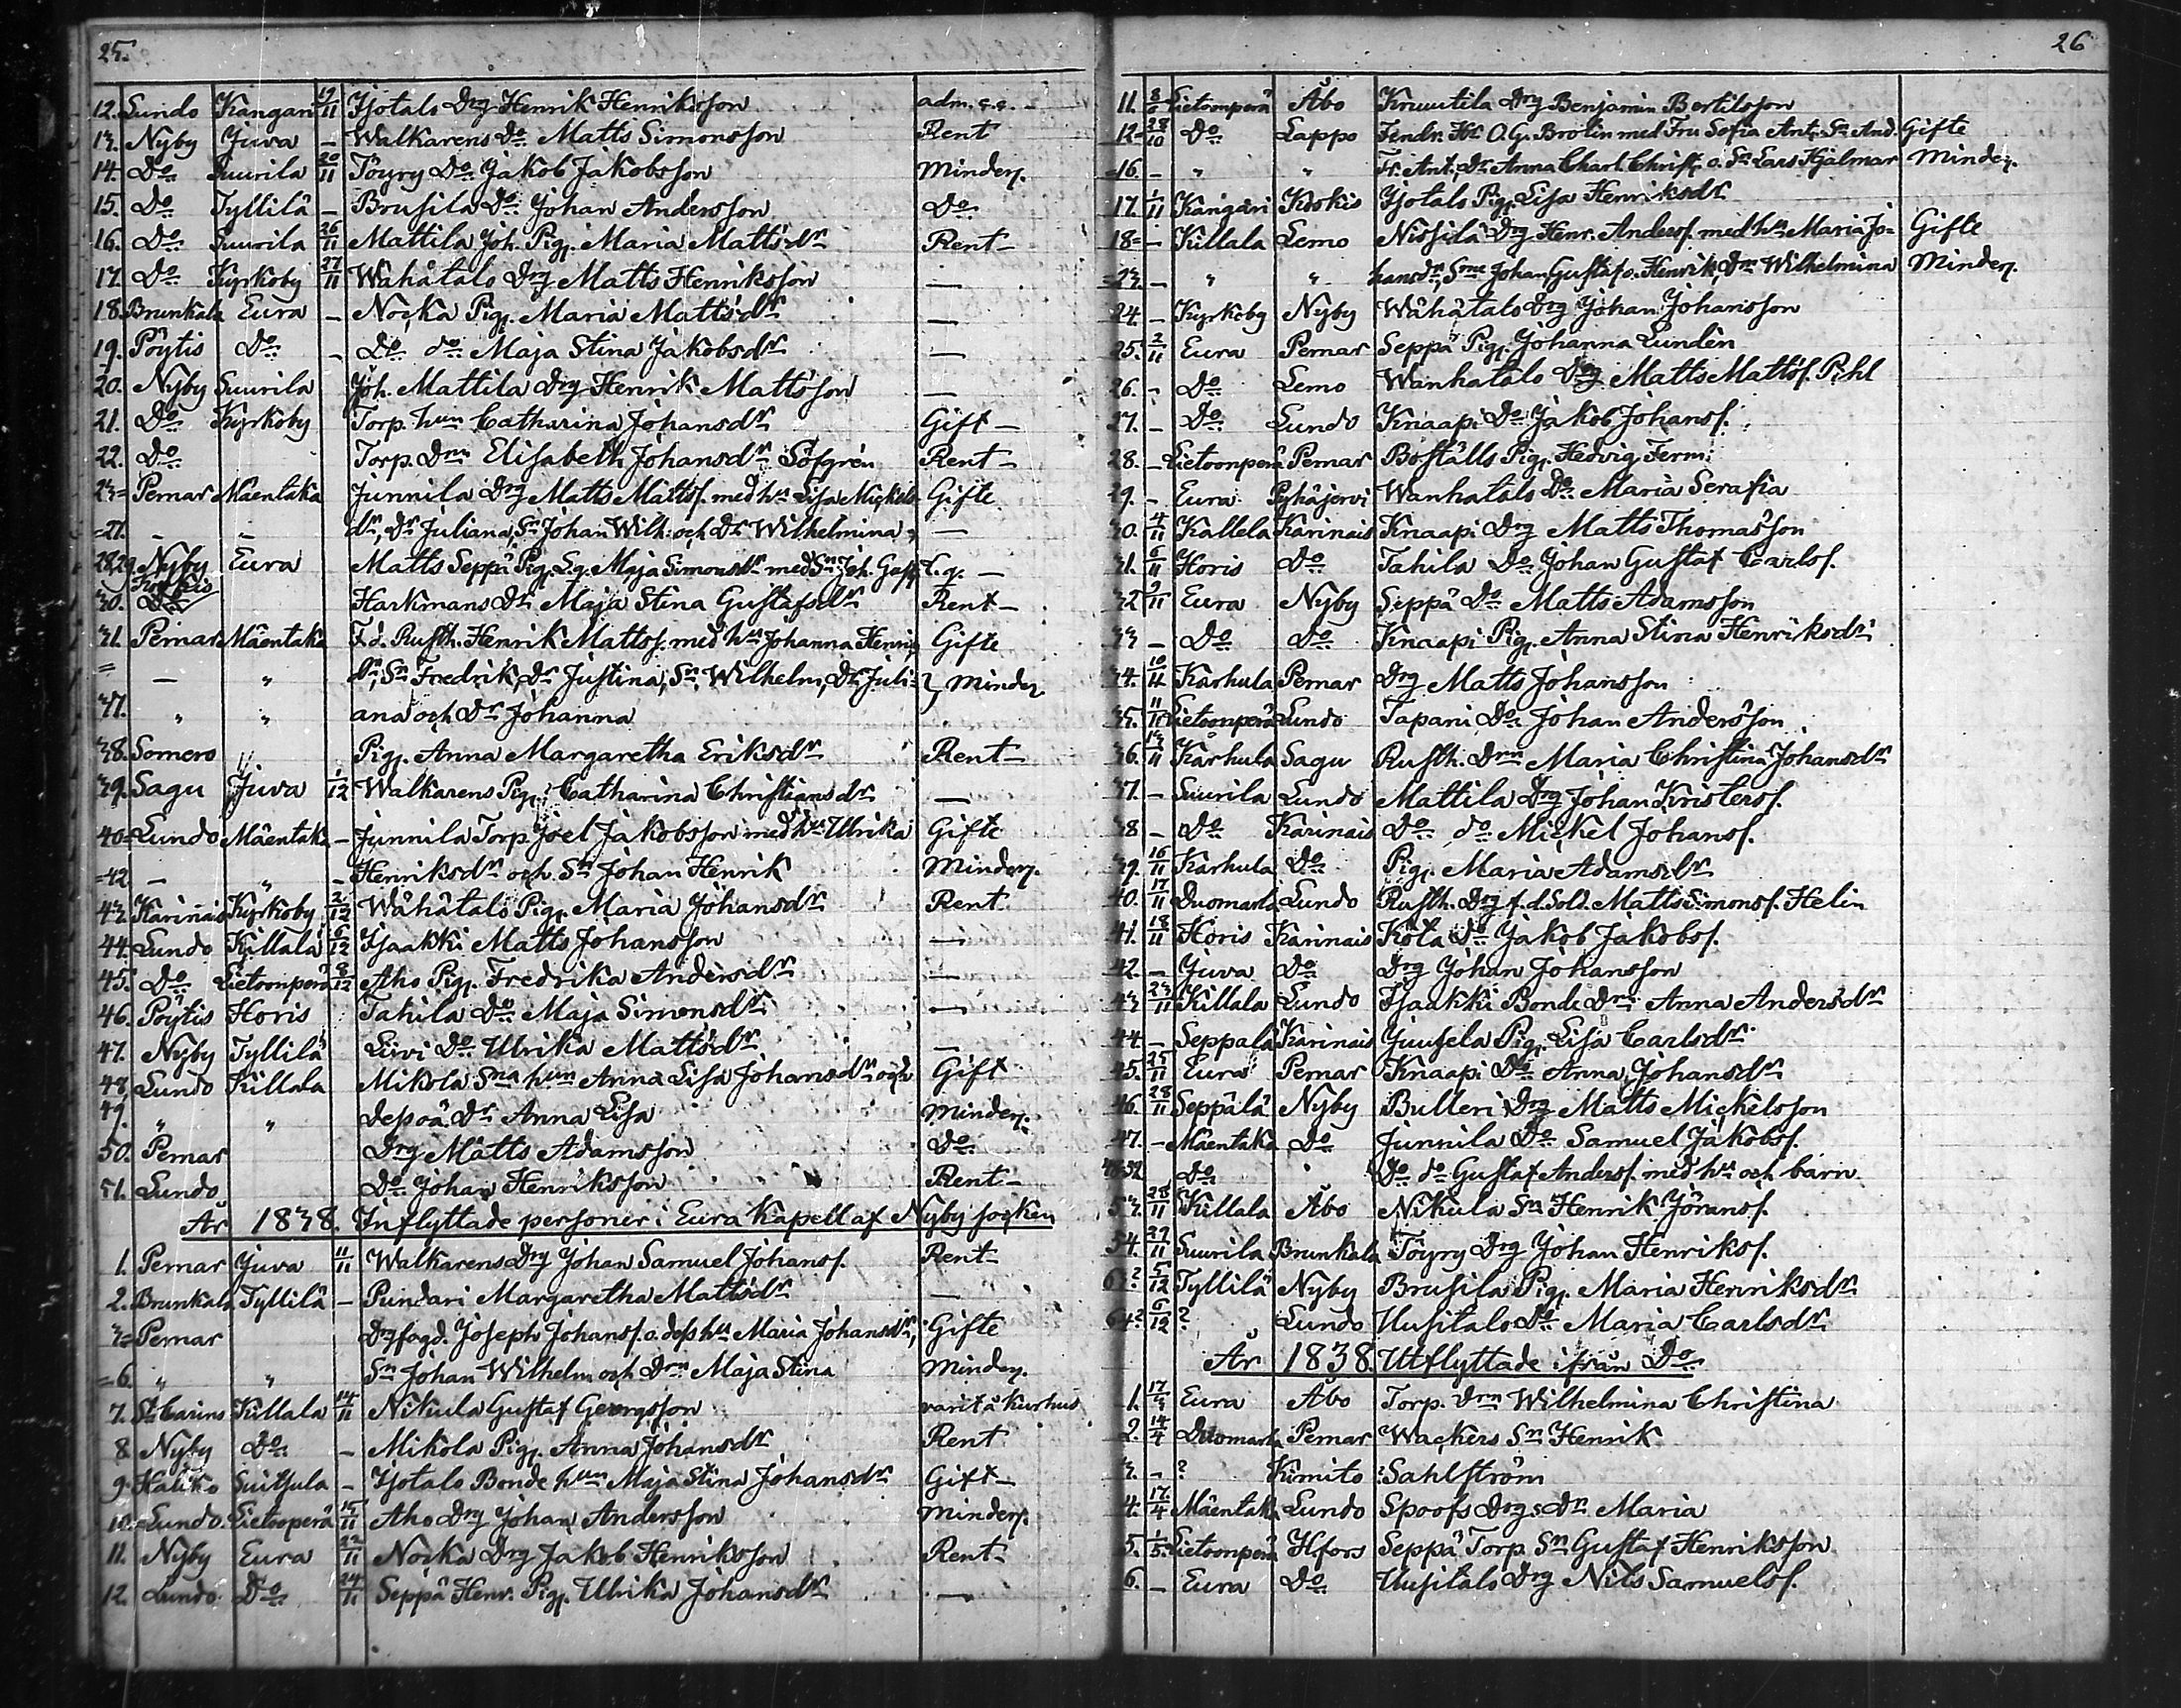 25.
12. Lundo Kangari 19/11 Isotalo Drg Henrik Henriksson adm. c.c. -
13. Nyby Juva - Walkarens Do Matts Simonsson Rent
14. Do Suurila 20/11 Töyry Do Jakob Jakobsson Minderj.
15. Do Tyllilä - Brusila Do Johan Andersson Do
16. Do Suurila 26/11 Mattila Joh. Pig. Maria Mattsdr Rent -
17. Do Kyrkoby 27/11 Wähätalo Drg Matts Henriksson —
18. Brunkala Eura - Nocka Pig. Maria Mattsdr —
19. Pöytis Do - Do do Maja Stina Jakobsdr —
20. Nyby Suurila Joh. Mattila Drg Henrik Mattsson —
21. Do Kyrkoby Torp. hun Catharina Johansdr Gift -
22. Do Torp. Drn Elisabeth Johansdr Söfgrén Rent -
23= Pemar Mäentaka Junnila Drg Matts Mattss. med hu Lisa Mickels- Gifte
=27. - - dr, Dr Juliana, Sn Johan Wilh. och Dr Wilhelmina —
28,29. Nyby Eura Matts Seppä Pig. L.g. Maja Simonsdr med Sn Joh. Gust. L.g. —
30. Koskis Do Harkmans Dr Maja Stina Gustafsdr Rent -
31. Pemar Mäentaka F.d. Rusth. Henrik Mattss. med hu Johanna Henriks Gifte
= — " dr, Sn Fredrik, Dr Justina, Sn Wilhelm, Dr Juli- } Minderj.
37. " " ana och Dr Johanna
38. Somero Pig. Anna Margaretha Eriksdr Rent -
39. Sagu Juva 1/12 Walkarens Pig. Catharina Christiansdr —
40= Lundo Mäentaka - Junnila Torp. Joel Jakobsson med hu Ulrika Gifte
=42. — " - Henriksdr och Sn Johan Henrik Minderj.
43. Karinais Kyrkoby 2/12 Wähätalo Pig. Maria Johansdr Rent
44. Lundo Killala 6/12 Isaakki Matts Johansson —
45. Do Lietoonperä 8/12 Aho Pig. Fredrika Andersdr —
46. Pöytis Horis Tahila Do Maja Simonsdr —
47. Nyby Tyllilä Livi Do Ulrika Mattsdr —
48. Lundo Killala Mikola Sna hun Anna Lisa Johansdr och Gift
49. " " dess ä. Dr Anna Lisa Minderj.
50. Pemar Drg Matts Adamsson Do
51. Lundo Do Johan Henriksson Rent -
År 1838. Inflyttade personer i Eura Kapell af Nyby socken
1. Pemar Juva 11/11 Walkarens Drg Johan Samuel Johanss. Rent -
2. Brunkala Tyllilä - Pundari Margaretha Mattsdr —
3= Pemar Drgfogd. Joseph Johanss. o. dess hu Maria Johansdr, Gifte
=6. " " Sn Johan Wilhelm och Drn Maja Stina Minderj.
7. St Carins Killala 14/11 Nikula Gustaf Georgsson varit å Kurhus
8 Nyby Do - Mikola Pig. Anna Johansdr Rent
9. Haliko Suitsula - Isotalo Bonde hun Maja Stina Johansdr Gift -
10. Lundo. Lietooperä 15/11 Aho Drg Johan Andersson Minderj.
11. Nyby Eura 22/11 Nocka Drg Jakob Henriksson Rent -
12. Lundo Do 24/11 Seppä Henr. Pig. Ulrika Johansdr —
26
11. Lietoonperä Åbo Knuutila Drg Benjamin Bertilsson
12= 28/10 Do Lappo Fendr. Hr O.G. Brolin med Fru Sofia Ant. Sn And. Gifte
=16. - " " Fr. Ant. Dr Anna Charl. Christ. o. Sn Lars Hjalmar Minderj.
17. 1/11 Kangari Koskis Isotalo Pig. Lisa Henriksdr
18= - Killala Lemo Nissilä Drg Henr. Anderss. med hu Maria Jo- Gifte
=23. - " " hansdr, Sne Johan Gustaf o. Henrik, Drn Wilhelmina Minderj.
24. - Kyrkoby Nyby Wähätalo Drg Johan Johansson
25. 2/11 Eura Pemar Seppä Pig. Johanna Lundén
26. - Do Lemo Wanhatalo Drg Matts Mattss. Pihl
27. - Do Lundo Knaapi Do Jakob Johanss.
28. - Lietoonperä Pemar Boställs Pig. Hedvig Ferm
29. - Eura Pyhäjervi Wanhatalo Do Maria Serafia
30. 4/11 Kallela Karinais Knaapi Drg Matts Thomasson
31. 6/11 Horis Do Tahila Do Johan Gustaf Carlss.
32 9/11 Eura Nyby Seppä Do Matts Adamsson
33 - Do Do Knaapi Pig. Anna Stina Henriksdr
34. 10/11 Karhula Pemar Drg Matts Johansson
35. 11/11 Lietoonperä Lundo Tapani Do Johan Andersson
36. 13/11 Karhula Sagu Rusth. Drn Maria Christina Johansdr
37. - Suurila Lundo Mattila Drg Johan Kristerss.
38 - Do Karinais Do do Mickel Johanss.
39. 16/11 Karhula Do Pig. Maria Adamsdr
40. 17/11 Duomarla Lundo Rusth. Drg f.d. Sold. Matts Simonss. Helin
41. 18/11 Horis Karinais Kota Do Jakob Jakobss.
42. - Juva Do Drg Johan Johansson
43 23/11 Killala Lundo Isaakki Bonde Drn Anna Andersdr
44. - Seppälä Karinais Juusela Pig. Lisa Carlsdr
45. 25/11 Eura Pemar Knaapi Do Anna Johansdr
46. 28/11 Seppälä Nyby Bulleri Drg Matts Mickelsson
47. - Mäentaka Do Junnila Do Samuel Jakobss.
48-52 Do " Do do Gustaf Anderss. med hu och barn
53. 28/11 Killala Åbo Nikula Sn Henrik Jöranss.
54. 29/11 Suurila Brunkala Töyry Drg Johan Henrikss.
63? 5/12 Tyllilä Nyby Brusila Pig. Maria Henriksdr
64? 6/12 ? Lundo Uusitalo Do Maria Carlsdr
År 1838 Utflyttade ifrån Do
1. 17/3 Eura Åbo Torp. drn Wilhelmina Christina
2. 14/4 Duomarla Pemar Wackers Sn Henrik
3. - ? Kimito ? Sahlström
4. 17/4 Mäentaka Lundo Spoofs Drgs Dr Maria
5. 1/5 Lietoonperä Hfors Seppä Torp. Sn Gustaf Henriksson
6. - Eura Do Uusitalo Drg Nils Samuelss.